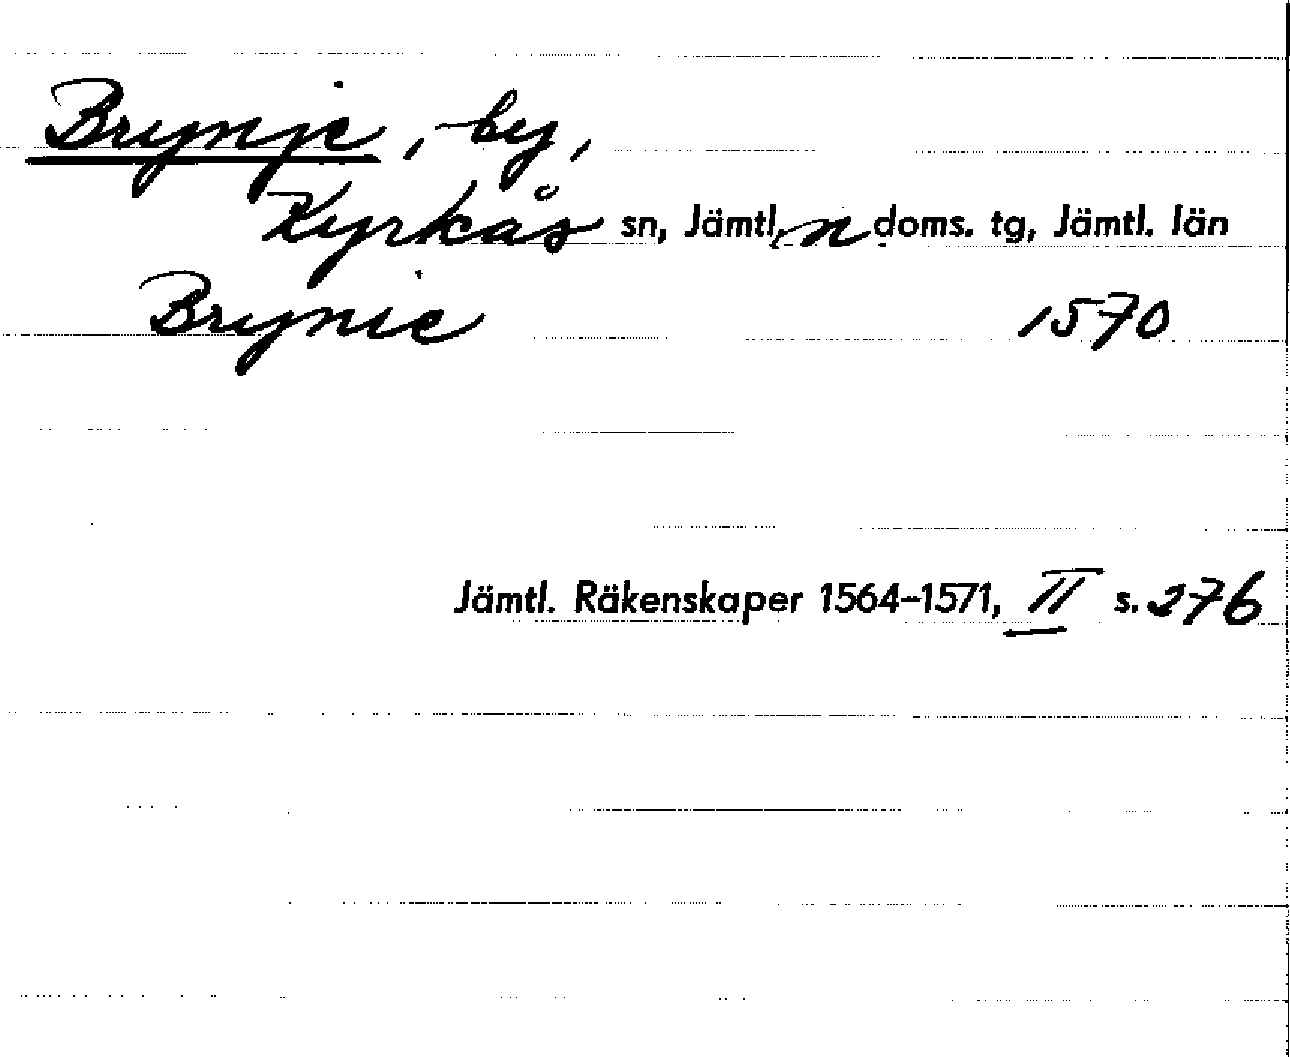 Brynje, by,
Kyrkås sn, Jämtl, n doms. tg, Jämtl. län
Brynie 1570
Jämtl. Räkenskaper 1564-1571, II s. 276